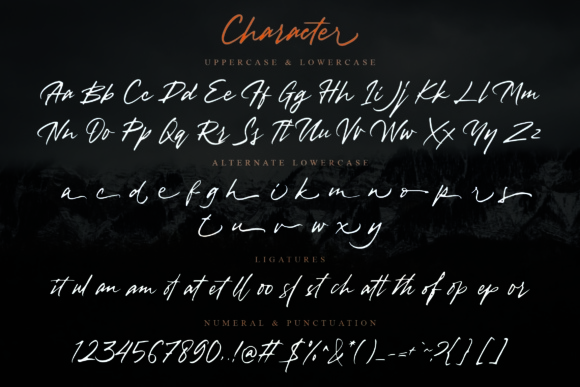 Character
UPPERCASE & LOWERCASE
Aa Bb Cc Dd Ee Ff Gg Hh Ii Jj Kk Ll Mm
Nn Oo Pp Qq Rr Ss Tt Uu Vv Ww Xx Yy Zz
ALTERNATE LOWERCASE
a c d e f g h i k m n o p r s
t u v w x y
LIGATURES
it ul an am ot at et ll oo sf st ch att th of op ep or
NUMERAL & PUNCTUATION
1234567890,.!@# $%^&*()_--=+`~?{}[]